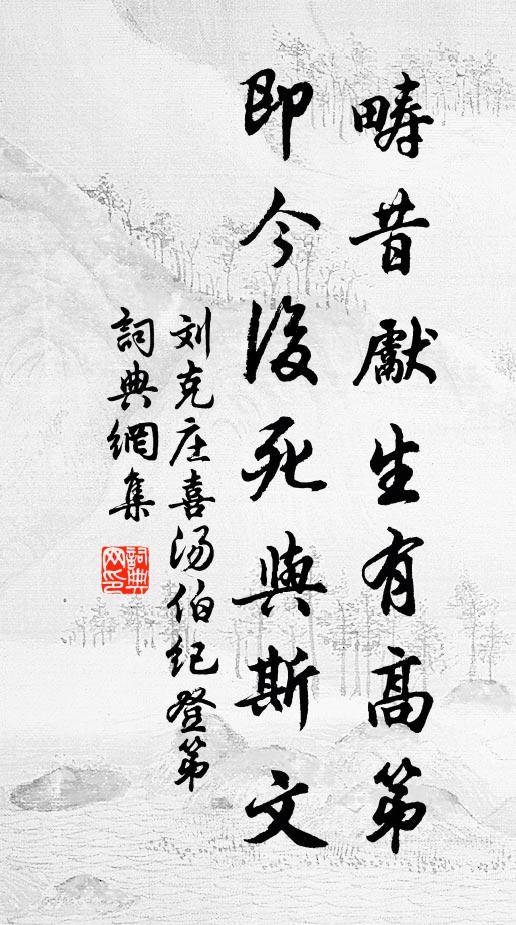 疇昔獻生有高第
即今後死與斯文
刘克庄喜汤伯纪登第
詞典網集
詞典网印